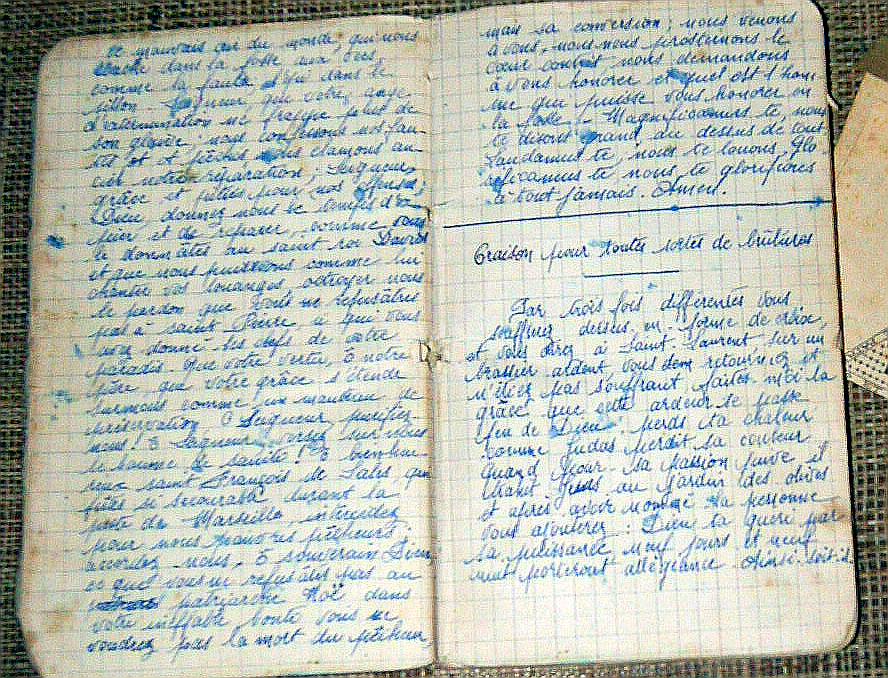 Le mauvais air du monde, qui nous
couche dans la fosse aux vers
comme la faulx l'épi dans le
sillon. Seigneur que votre ange
d'extermination ne frappe plus de
son glaive, nous confessons nos fau-
tes et péchés nous clamons
notre réparation; Seigneur,
grâce et pitiés pour nos offenses;
Dieu, donnez nous le temps d'ex-
pier et de réparer, comme vous
le donnâtes au saint roi David
et que nous puissions comme lui
chanter vos louanges, octroyez nous
le pardon que vous ne refusâtes
pas à saint Pierre à qui vous
avez donné les clefs de votre
paradis. Que votre vertu, ô notre
père, que votre grâce s'étende
sur nous comme un manteau de
préservation. O Seigneur, purifiez
nous! O Seigneur versez sur nous
le baume de santé! O bienheu-
reux saint François de Sales, qui
fûtes si secourable durant la
peste de Marseille, intercédez
pour nous pauvres pêcheurs;
accordez nous, ô souverain Dieu
ce que vous ne refusâtes pas au
patriarche Noé dans
votre ineffable bonté vous ne
voudrez pas la mort du pêcheur,
mais sa conversion; nous venons
à vous, nous nous prosternons le
cœur contrit nous demandons
à vous honorer et quel est l'hom
me qui puisse vous honorer en
la fosse - Magnificamus te, nous
te disons grand au dessus de tout
Laudamus te, nous te louons, Glo
reficamus te nous te glorifions
à tout jamais. Amen.
Oraison pour toutes sortes de brûlures
Par trois fois différentes vous
soufflez dessus en forme de croix,
et vous direz à Saint Laurent sur un
brassier ardent vous
n'étiez pas souffrant faites moi la
grâce que cette ardeur se passe
feu de Dieu perds ta chaleur
comme Judas perdit sa couleur
Quand pour sa passion juive il
Jésus au jardin des olives
et après avoir nommé la personne
vous ajouterez: Dieu ta guéri par
sa puissance neuf jours et neuf
nuit porteront allégeance Ainsi-soit-il